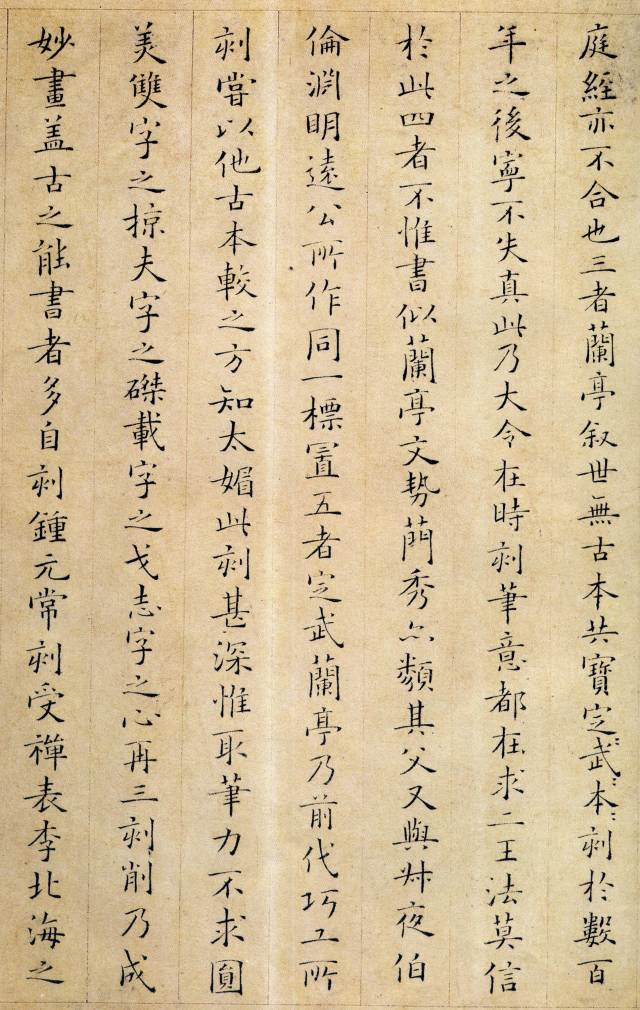 庭經亦不合也三者蘭亭叙世無古本共寶定〻武〻本〻刻於數百
年之後寧不失真此乃大令在時刻筆意都在求二王法莫信
於此四者不惟書似蘭亭文勢蕳秀亦類其父又與叔夜伯
倫淵明遠公所作同一標置五者定武蘭亭乃前代巧工所
刻嘗以他古本較之方知太媚此刻甚深惟取筆力不求圓
美雙字之掠夫字之磔載字之戈志字之心再三刻削乃成
妙畫盖古之能書者多自刻鍾元常刻受禪表李北海之